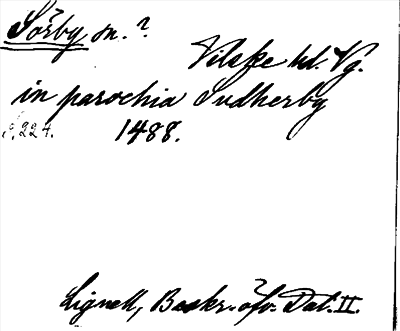 Sörby sn.?
Vilske hd. Vg.
in parochia Sudherby
S. 224. 1488.
Lignell, Beskr. öfv. Dal. II.